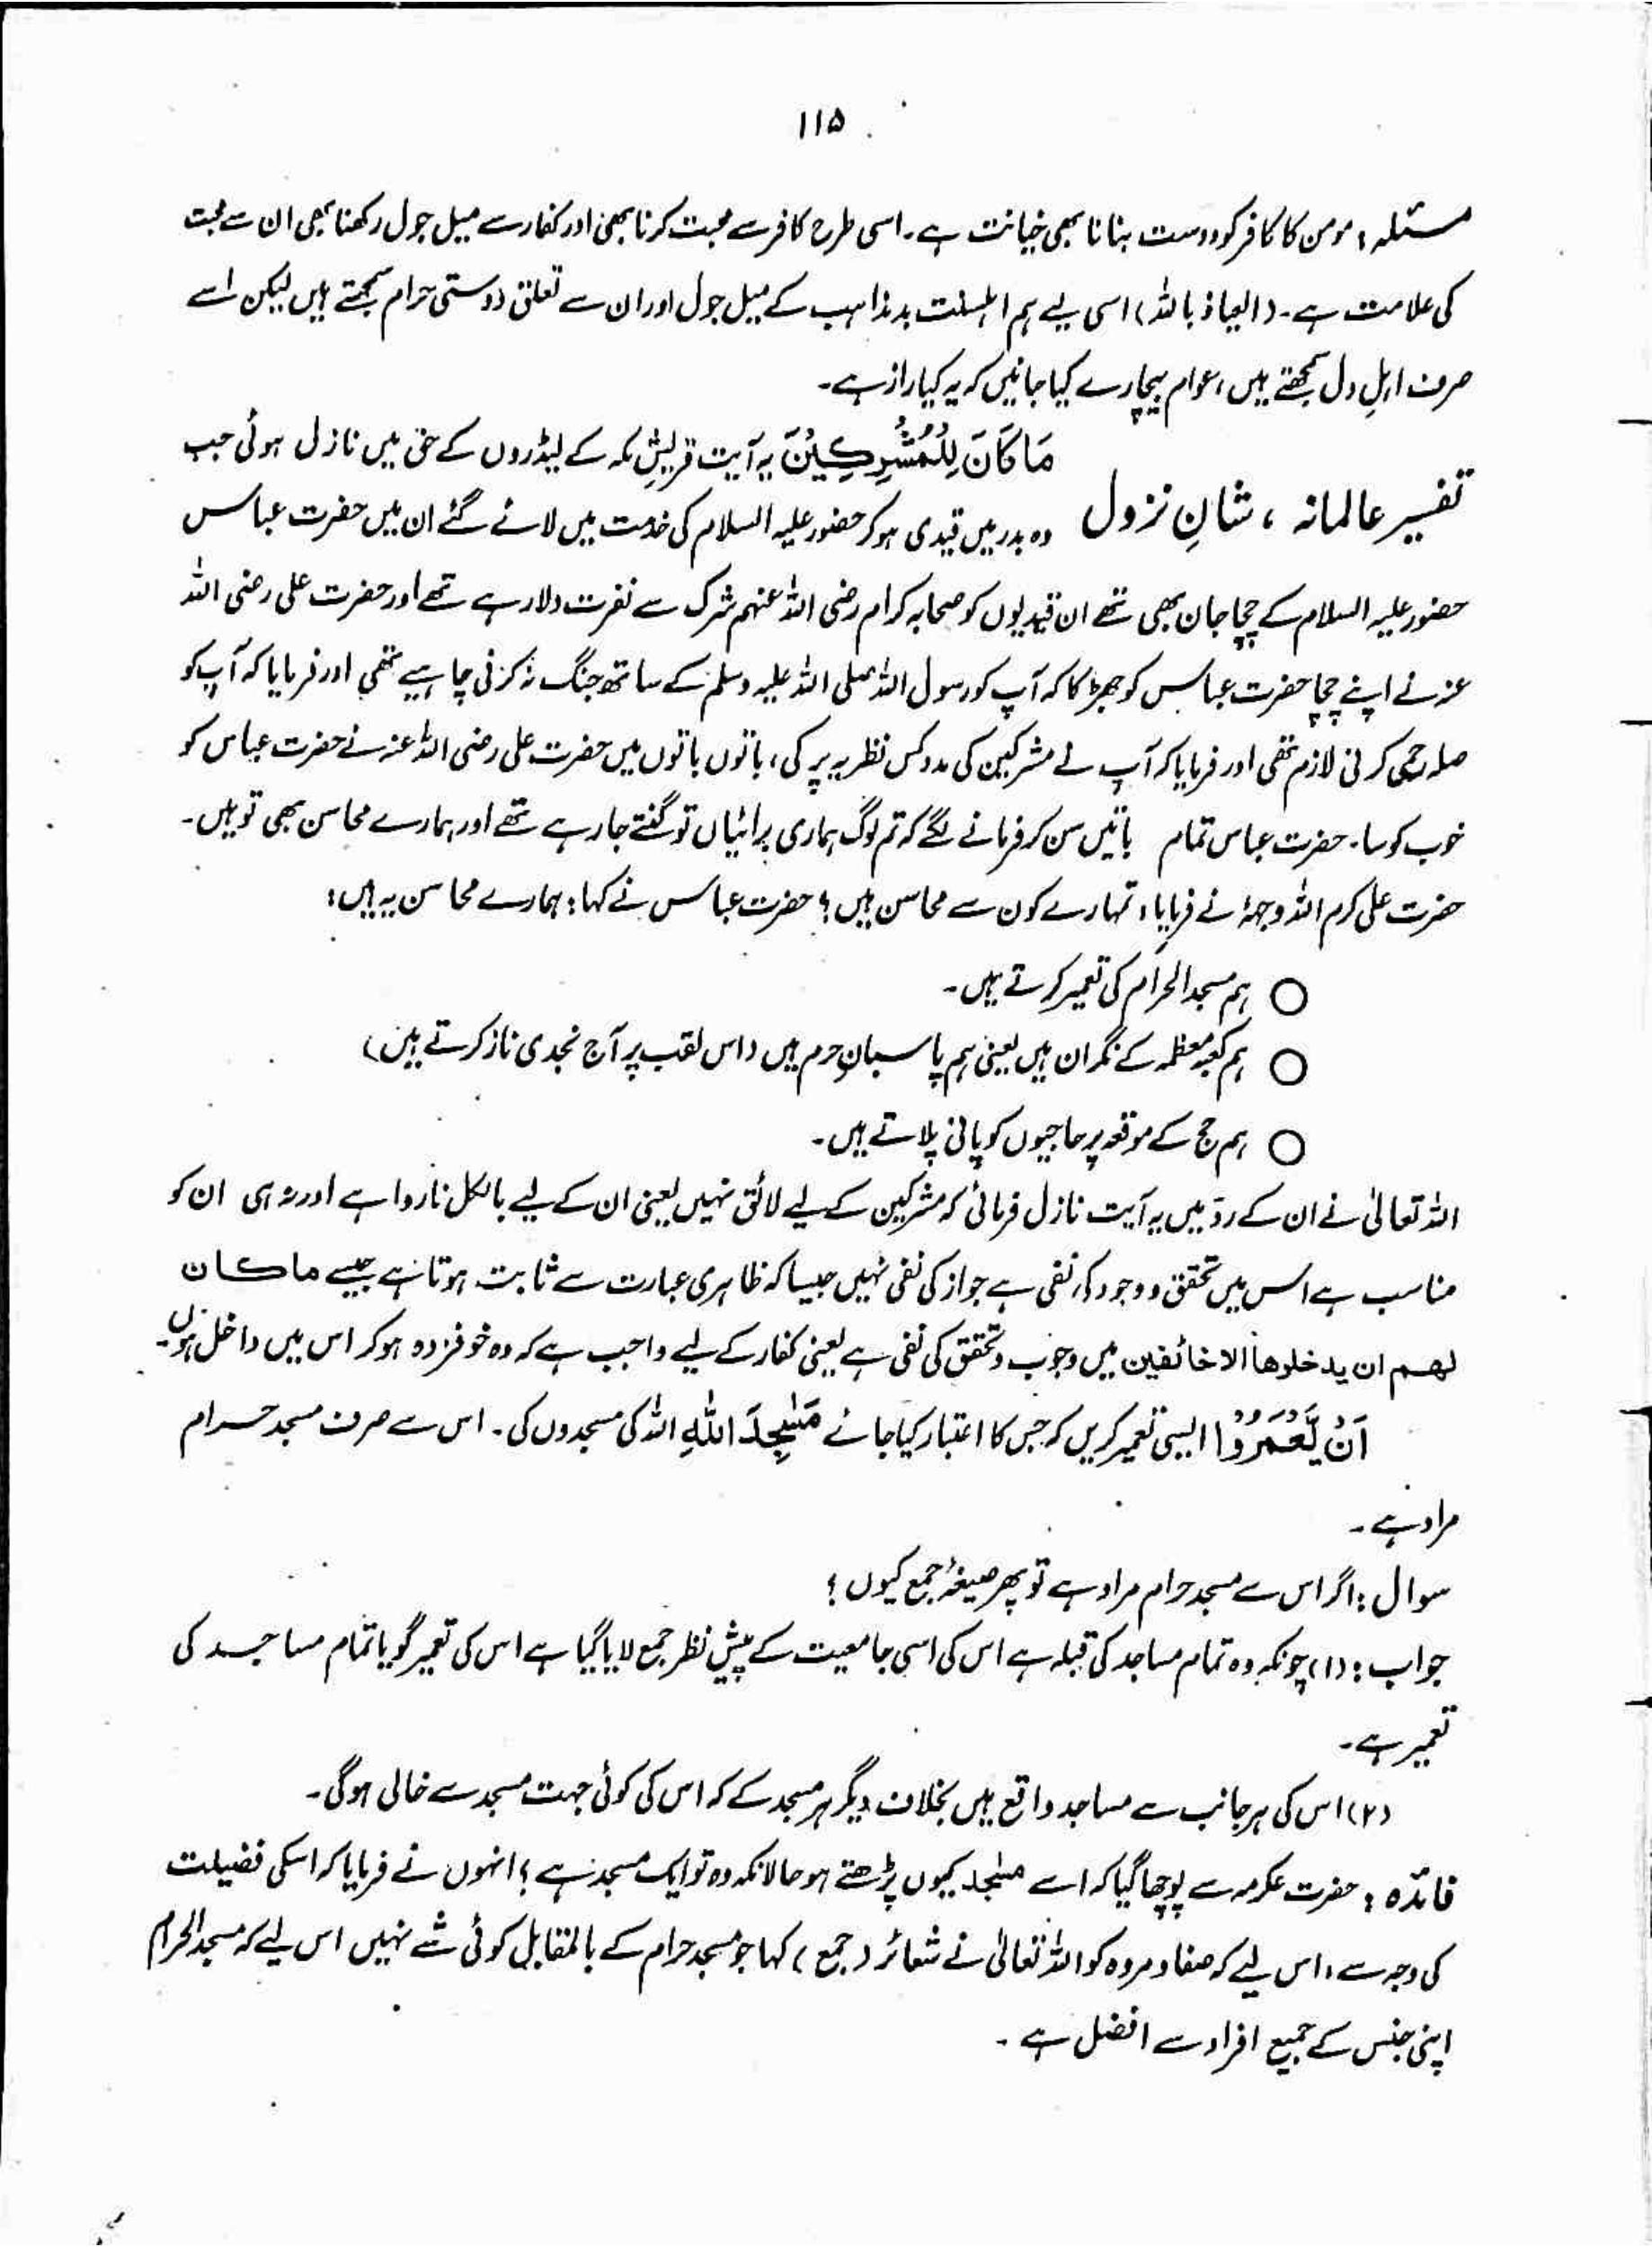 ۱۱۵
مسئلہ : مومن کا کافر کو دوست بنانا بھی خیانت ہے۔ اسی طرح کافر سے محبت کرنا بھی اور کفار سے میل جول رکھنا بھی ان سے محبت
کی علامت ہے۔ (العیاذ باللہ) اسی لیے ہم اہلسنت بدمذاہب کے میل جول اور ان سے تعلق دوستی حرام سمجھتے ہیں لیکن اسے
صرف اہلِ دل سمجھتے ہیں، عوام بیچارے کیا جانیں کہ یہ کیا راز ہے۔
مَا كَانَ لِلْمُشْرِكِيْنَ یہ آیت قریشِ مکہ کے لیڈروں کے حق میں نازل ہوئی جب
تفسیر عالمانہ ، شانِ نزول
وہ بدر میں قیدی ہو کر حضور علیہ السلام کی خدمت میں لائے گئے ان میں حضرت عباس
حضور علیہ السلام کے چچا جان بھی تھے ان قیدیوں کو صحابہ کرام رضی اللہ عنہم شرک سے نفرت دلا رہے تھے اور حضرت علی رضی اللہ
عنہ نے اپنے چچا حضرت عباس کو جھڑکا کہ آپ کو رسول اللہ صلی اللہ علیہ وسلم کے ساتھ جنگ نہ کرنی چاہیے تھی اور فرمایا کہ آپ کو
صلہ رحمی کرنی لازم تھی اور فرمایا کہ آپ نے مشرکین کی مدد کس نظریہ پر کی، باتوں باتوں میں حضرت علی رضی اللہ عنہ نے حضرت عباس کو
خوب کوسا۔ حضرت عباس تمام باتیں سن کر فرمانے لگے کہ تم لوگ ہماری برائیاں تو گنتے جا رہے تھے اور ہمارے محاسن بھی تو ہیں۔
حضرت علی کرم اللہ وجہہٗ نے فرمایا، تمہارے کون سے محاسن ہیں؟ حضرت عباس نے کہا: ہمارے محاسن یہ ہیں:
○ ہم مسجد الحرام کی تعمیر کرتے ہیں۔
○ ہم کعبہ معظمہ کے نگران ہیں یعنی ہم پاسبانِ حرم ہیں (اس لقب پر آج نجدی ناز کرتے ہیں)
○ ہم حج کے موقعہ پر حاجیوں کو پانی پلاتے ہیں۔
اللہ تعالیٰ نے ان کے ردّ میں یہ آیت نازل فرمائی کہ مشرکین کے لیے لائق نہیں یعنی ان کے لیے بالکل ناروا ہے اور نہ ہی ان کو
مناسب ہے اس میں تحقق و وجود کی نفی ہے جواز کی نفی نہیں جیسا کہ ظاہری عبارت سے ثابت ہوتا ہے جیسے ماکان
لھم ان یدخلوھا الا خائفین میں وجوب و تحقق کی نفی ہے یعنی کفار کے لیے واجب ہے کہ وہ خوفزدہ ہو کر اس میں داخل ہوں۔
اَنْ يَّعْمُرُوْا ایسی تعمیر کریں کہ جس کا اعتبار کیا جائے مَسٰجِدَ اللّٰهِ اللہ کی مسجدوں کی۔ اس سے صرف مسجد حرام
مراد ہے۔
سوال : اگر اس سے مسجد حرام مراد ہے تو پھر صیغۂ جمع کیوں؟
جواب : (۱) چونکہ وہ تمام مساجد کی قبلہ ہے اس کی اسی جامعیت کے پیشِ نظر جمع لایا گیا ہے اس کی تعمیر گویا تمام مساجد کی
تعمیر ہے۔
(۲) اس کی ہر جانب سے مساجد واقع ہیں بخلاف دیگر ہر مسجد کے کہ اس کی کوئی جہت مسجد سے خالی ہوگی۔
فائدہ : حضرت عکرمہ سے پوچھا گیا کہ اسے مسٰجد کیوں پڑھتے ہو حالانکہ وہ تو ایک مسجد ہے؟ انہوں نے فرمایا کہ اسکی فضیلت
کی وجہ سے، اس لیے کہ صفا و مروہ کو اللہ تعالیٰ نے شعائر (جمع) کہا جو مسجد حرام کے بالمقابل کوئی شے نہیں اس لیے کہ مسجد الحرام
اپنی جنس کے جمیع افراد سے افضل ہے۔